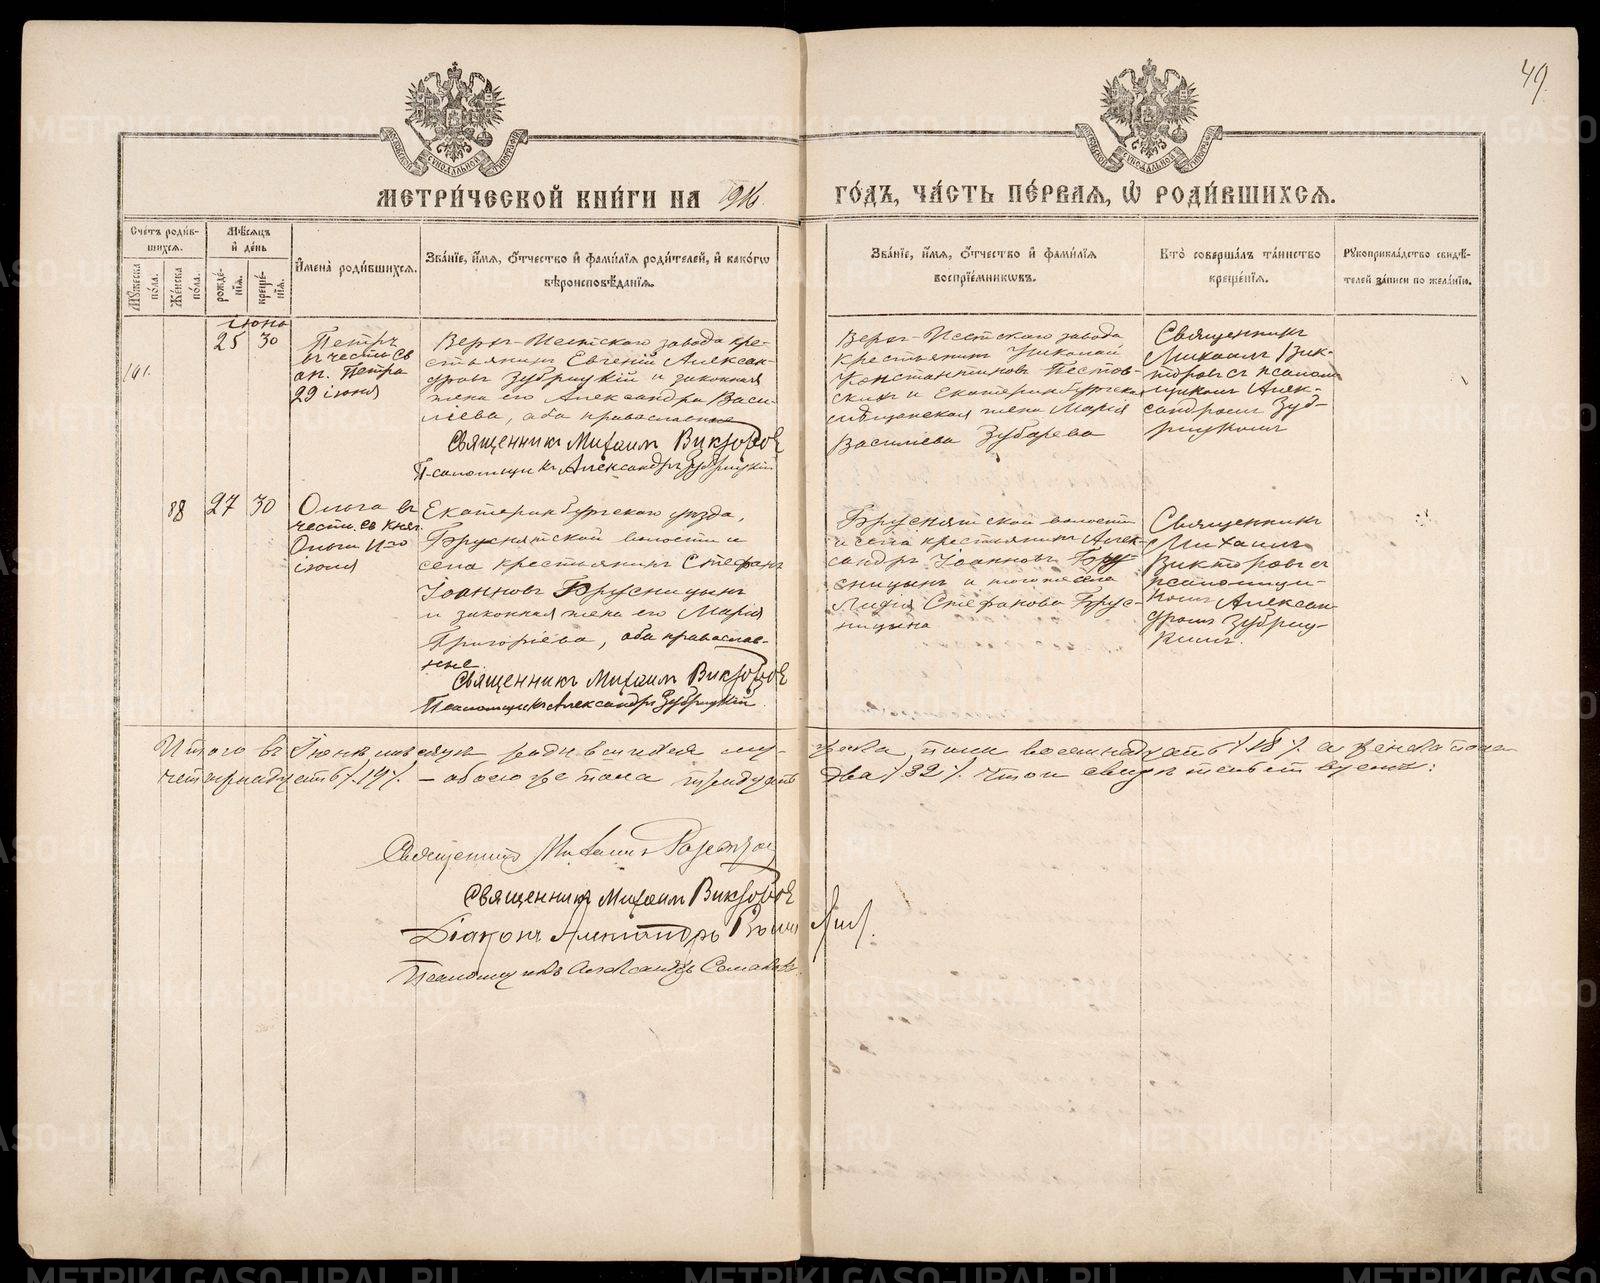 49
МЕТРИ́ЧЕСКОЙ КНИ́ГИ НА 1916
ГО́ДЪ, ЧА́СТЬ ПЕ́РВАЯ, Ѡ РОДИ́ВШИХСЯ.
Счетъ роди́в-
шихся.
Му́жеска по́ла.
Же́нска по́ла.
Мѣ́сяцъ
и де́нь
рожде́нїя.
креще́нїя.
И҆мена̀ роди́вшихся.
Зва́нїе, и҆́мя, ѻ҆́тчество и҆ фами́лїя роди́телей, и҆ како́гѡ
вѣроисповѣ́данїя.
Зва́нїе, и҆́мя, ѻ҆́тчество и҆ фами́лїя
воспрїе́мникѡвъ.
Кто̀ соверша́лъ та́инство
креще́нїя.
Рукоприкла́дство свидѣ́-
телей за́писи по жела́нїю.
Іюнь
101.
25 30
Петръ
въ честь св
ап. Петра
29 іюня
Верх-Исетскаго завода кре-
стьянинъ Евгеній Алексан-
дровъ Зубрицкій и законная
жена его Александра Васи-
ліева, оба православные
Священникъ Михаилъ Викторовъ
Псаломщикъ Александръ Зубрицкій
Верх-Исетскаго завода
крестьянинъ Николай
Константиновъ Пестов-
скихъ и Екатеринбургска
мѣщанская жена Марія
Василіева Зубарева
Священникъ
Михаилъ Вик-
торовъ съ псалом
щикомъ Алек-
сандромъ Зуб-
рицкимъ
88
27 30
Ольга въ
честь св княг.
Ольги 11го
іюля
Екатеринбургскаго уѣзда,
Бруснятской волости и
села крестьянинъ Стефанъ
Іоанновъ Брусницынъ
и законная жена его Марія
Григоріева, оба православ-
ные.
Священникъ Михаилъ Викторовъ
Псаломщикъ Александръ Зубрицкій.
Бруснятской волости
и села крестьянинъ Алек-
сандръ Іоанновъ Бру-
сницынъ и того же села
Лидія Стефанова Брус-
ницына
Священникъ
Михаилъ
Викторовъ съ
псаломщи-
комъ Алексан
дромъ Зубриц-
кимъ.
Итого въ Іюнѣ мѣсяцѣ родившихся му-
жеска пола восемнадцать /18/ а женска пола
четырнадцать /14/. – обоего же пола тридцать
два /32/. Что и свидѣтельствуемъ:
Священникъ Михаилъ
Священникъ Михаилъ Викторовъ
Діаконъ Александръ
Псаломщикъ Александръ
METRIKI.GASO-URAL.RU